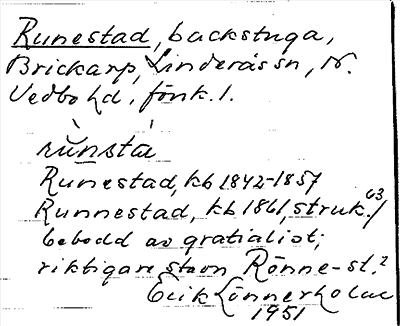 Runestad, backstuga,
Brickarp, Linderås sn, N.
Vedbo hd, Jönk. l.
runsta
Runestad, kb 1842-1857
Runnestad, kb 1861, struk. 63/
bebodd av gratialist;
riktigare stavn Rönne-st.?
Erik Lönnerholm
1951